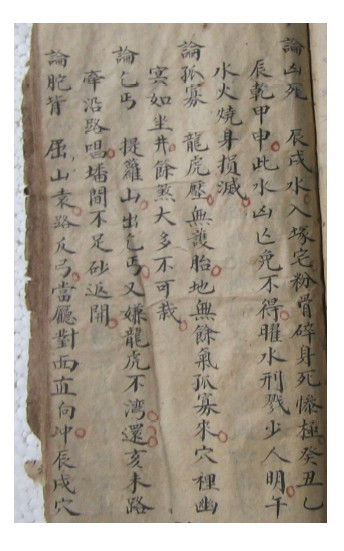 論凶死 辰戌水入塚宅粉骨碎身死慘極癸丑乙
辰乾甲申此水凶亡免不得曜水刑戮少人明午
水火燒身損滅
論孤寡 龍虎壓無護胎地無餘氣孤寡來穴裡幽
冥如坐井餘煞大多不可栽
論乞丐 提籬山出乞丐又嫌龍虎不灣還亥未路
牽沿路唱墦間不足砂返開
論肥背 屈山袁路反弓當廳對面直向冲辰戌穴